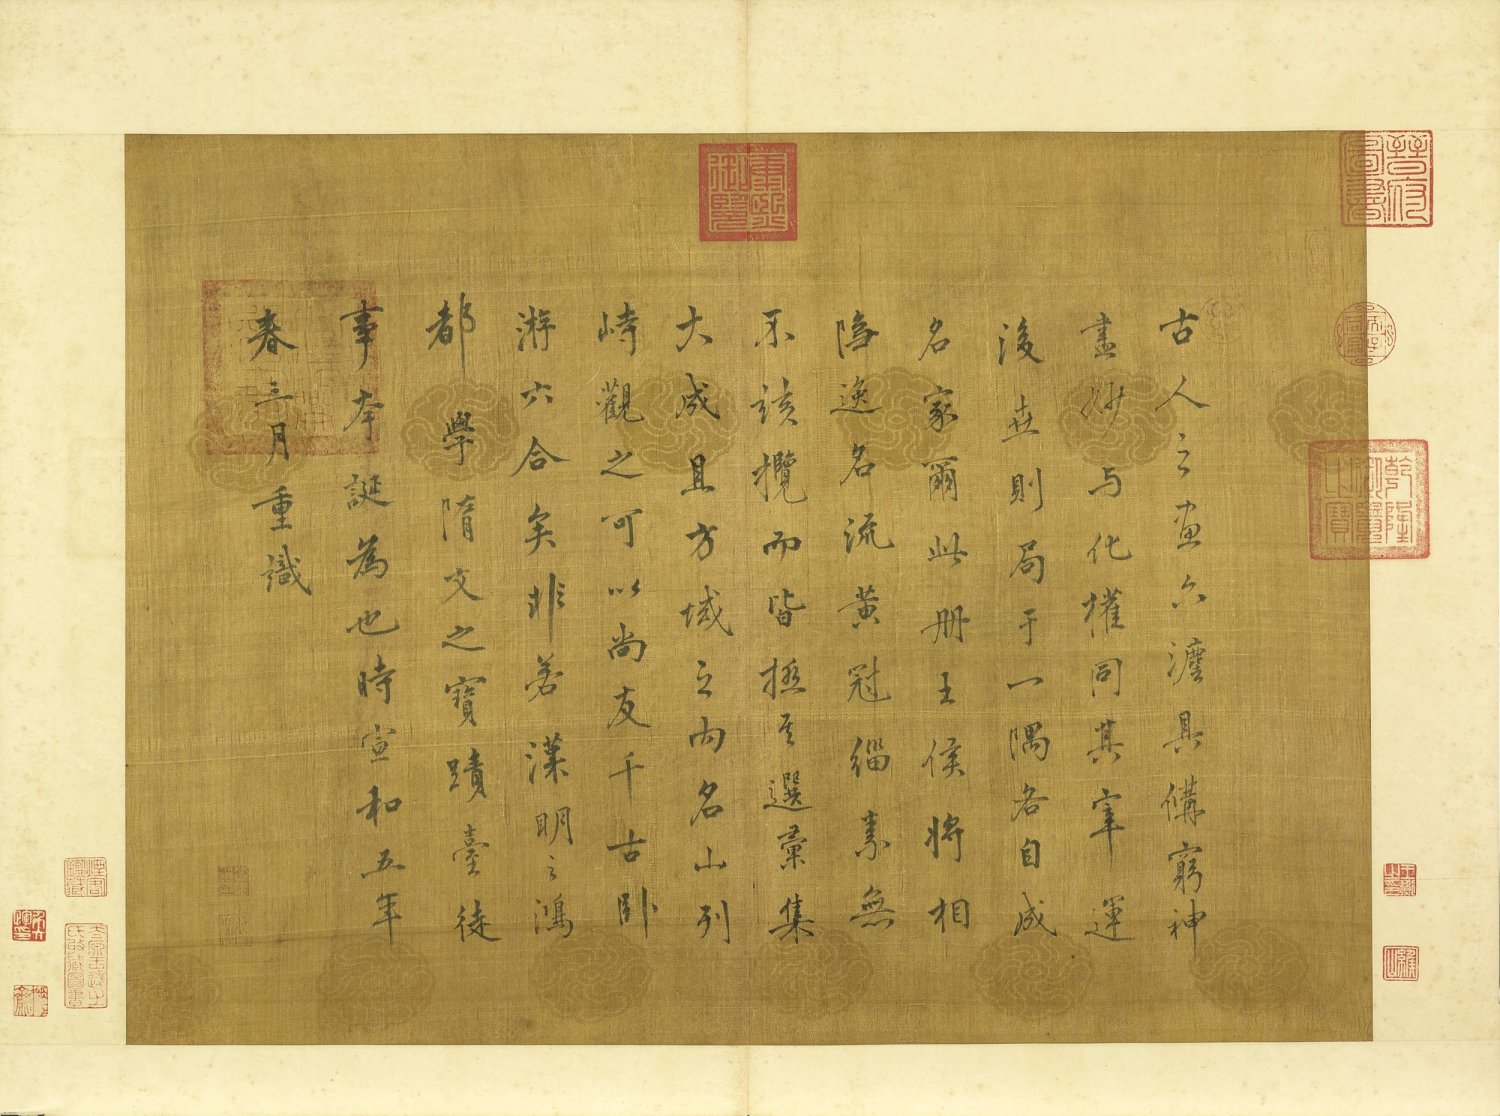 古人之画六法具備窮神
盡妙与化權同其宰運
後世則局于一隅各自成
名家爾此冊王侯將相
隐逸名流黄冠緇素無
不該攬而皆極其選彙集
大成且方域之内名山列
峙觀之可以尚友千古卧
游六合矣非若漢明之鴻
都學隋文之寶蹟臺徒
事夸誕為也時宣和五年
春三月重識
乾隆御覽之寶